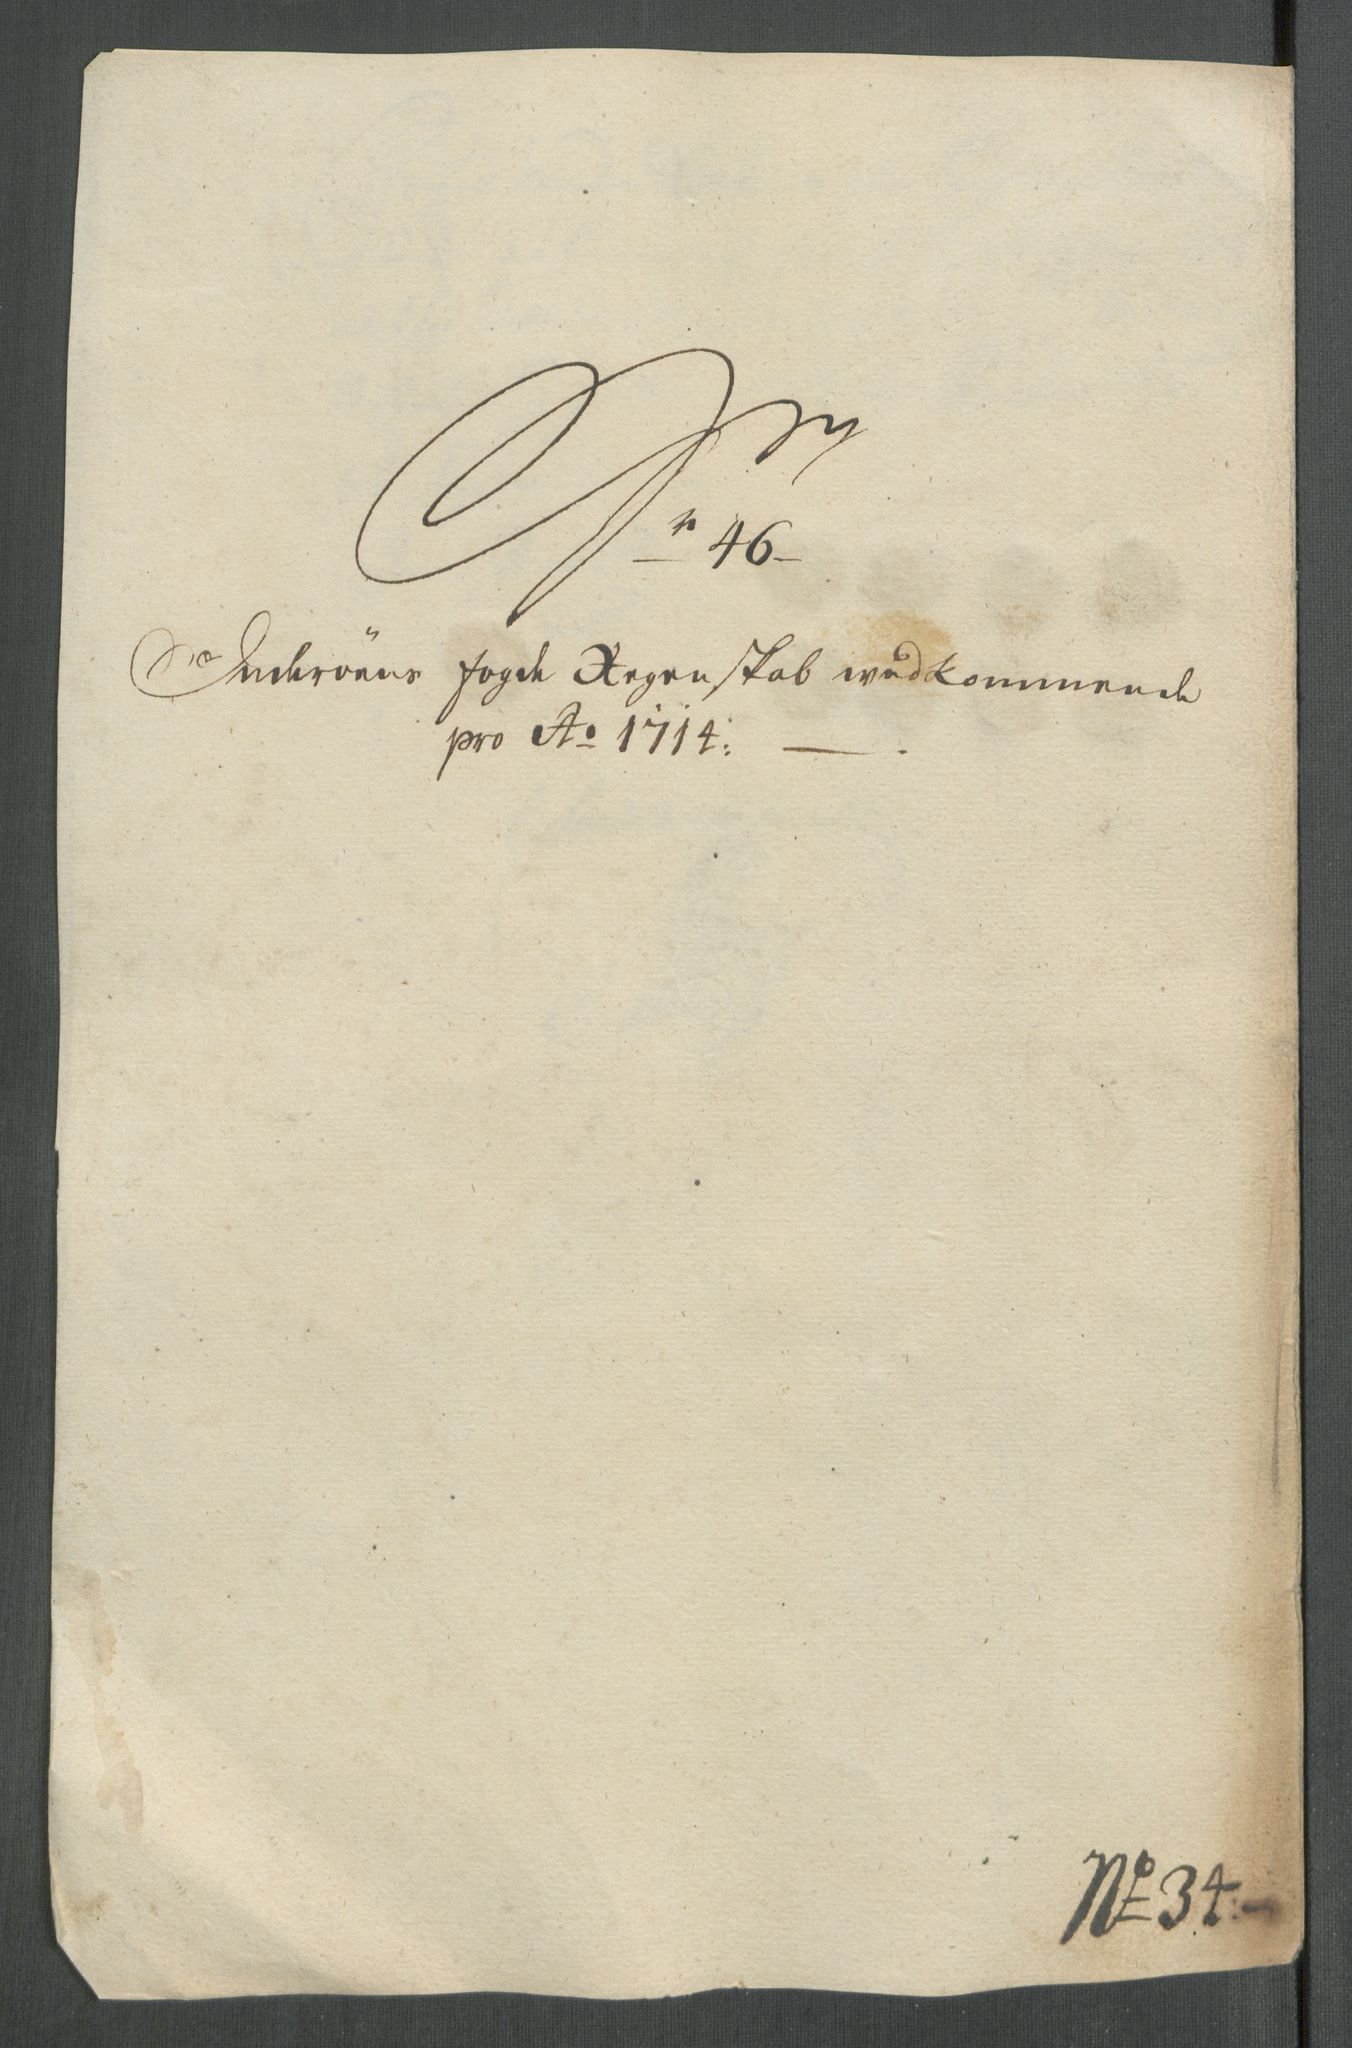 46
Inderöens fogde Regenskab wedkommende
pro Ao 1714:
No 34.